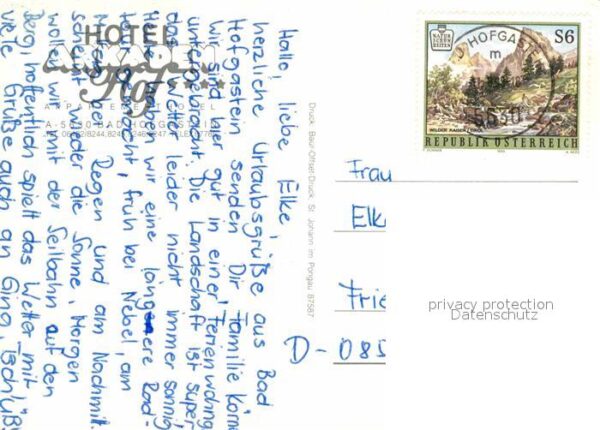 HOTEL
ARKADEN
Hof
APPARTEMENTHOTEL
A-5630 BAD HOFGASTEIN
Hallo, liebe Elke,
herzliche Urlaubsgrüße aus Bad
Hofgastein senden Dir Familie Körne
wir sind hier gut in einer Ferienwohng.
untergebracht. Die Landschaft ist super
das Wetter leider nicht immer sonnig
Heute haben wir eine längere Rad-
tour gemacht, früh bei Nebel, am
Mittag bei Regen und am Nachmitt.
scheint wieder die Sonne, Morgen
wollen wir mit der Seilbahn auf den
Berg, hoffentlich spielt das Wetter mit
viele Grüße auch an Gina, Tschüß
Druck: Baur-Offset-Druck, St. Johann im Pongau 87587
NATUR
SCHÖN
HEITEN
S6
HOFGAST
m
5630
WILDER KAISER / TIROL
REPUBLIK ÖSTERREICH
Frau
Elke
Frie
D-085
privacy protection
Datenschutz